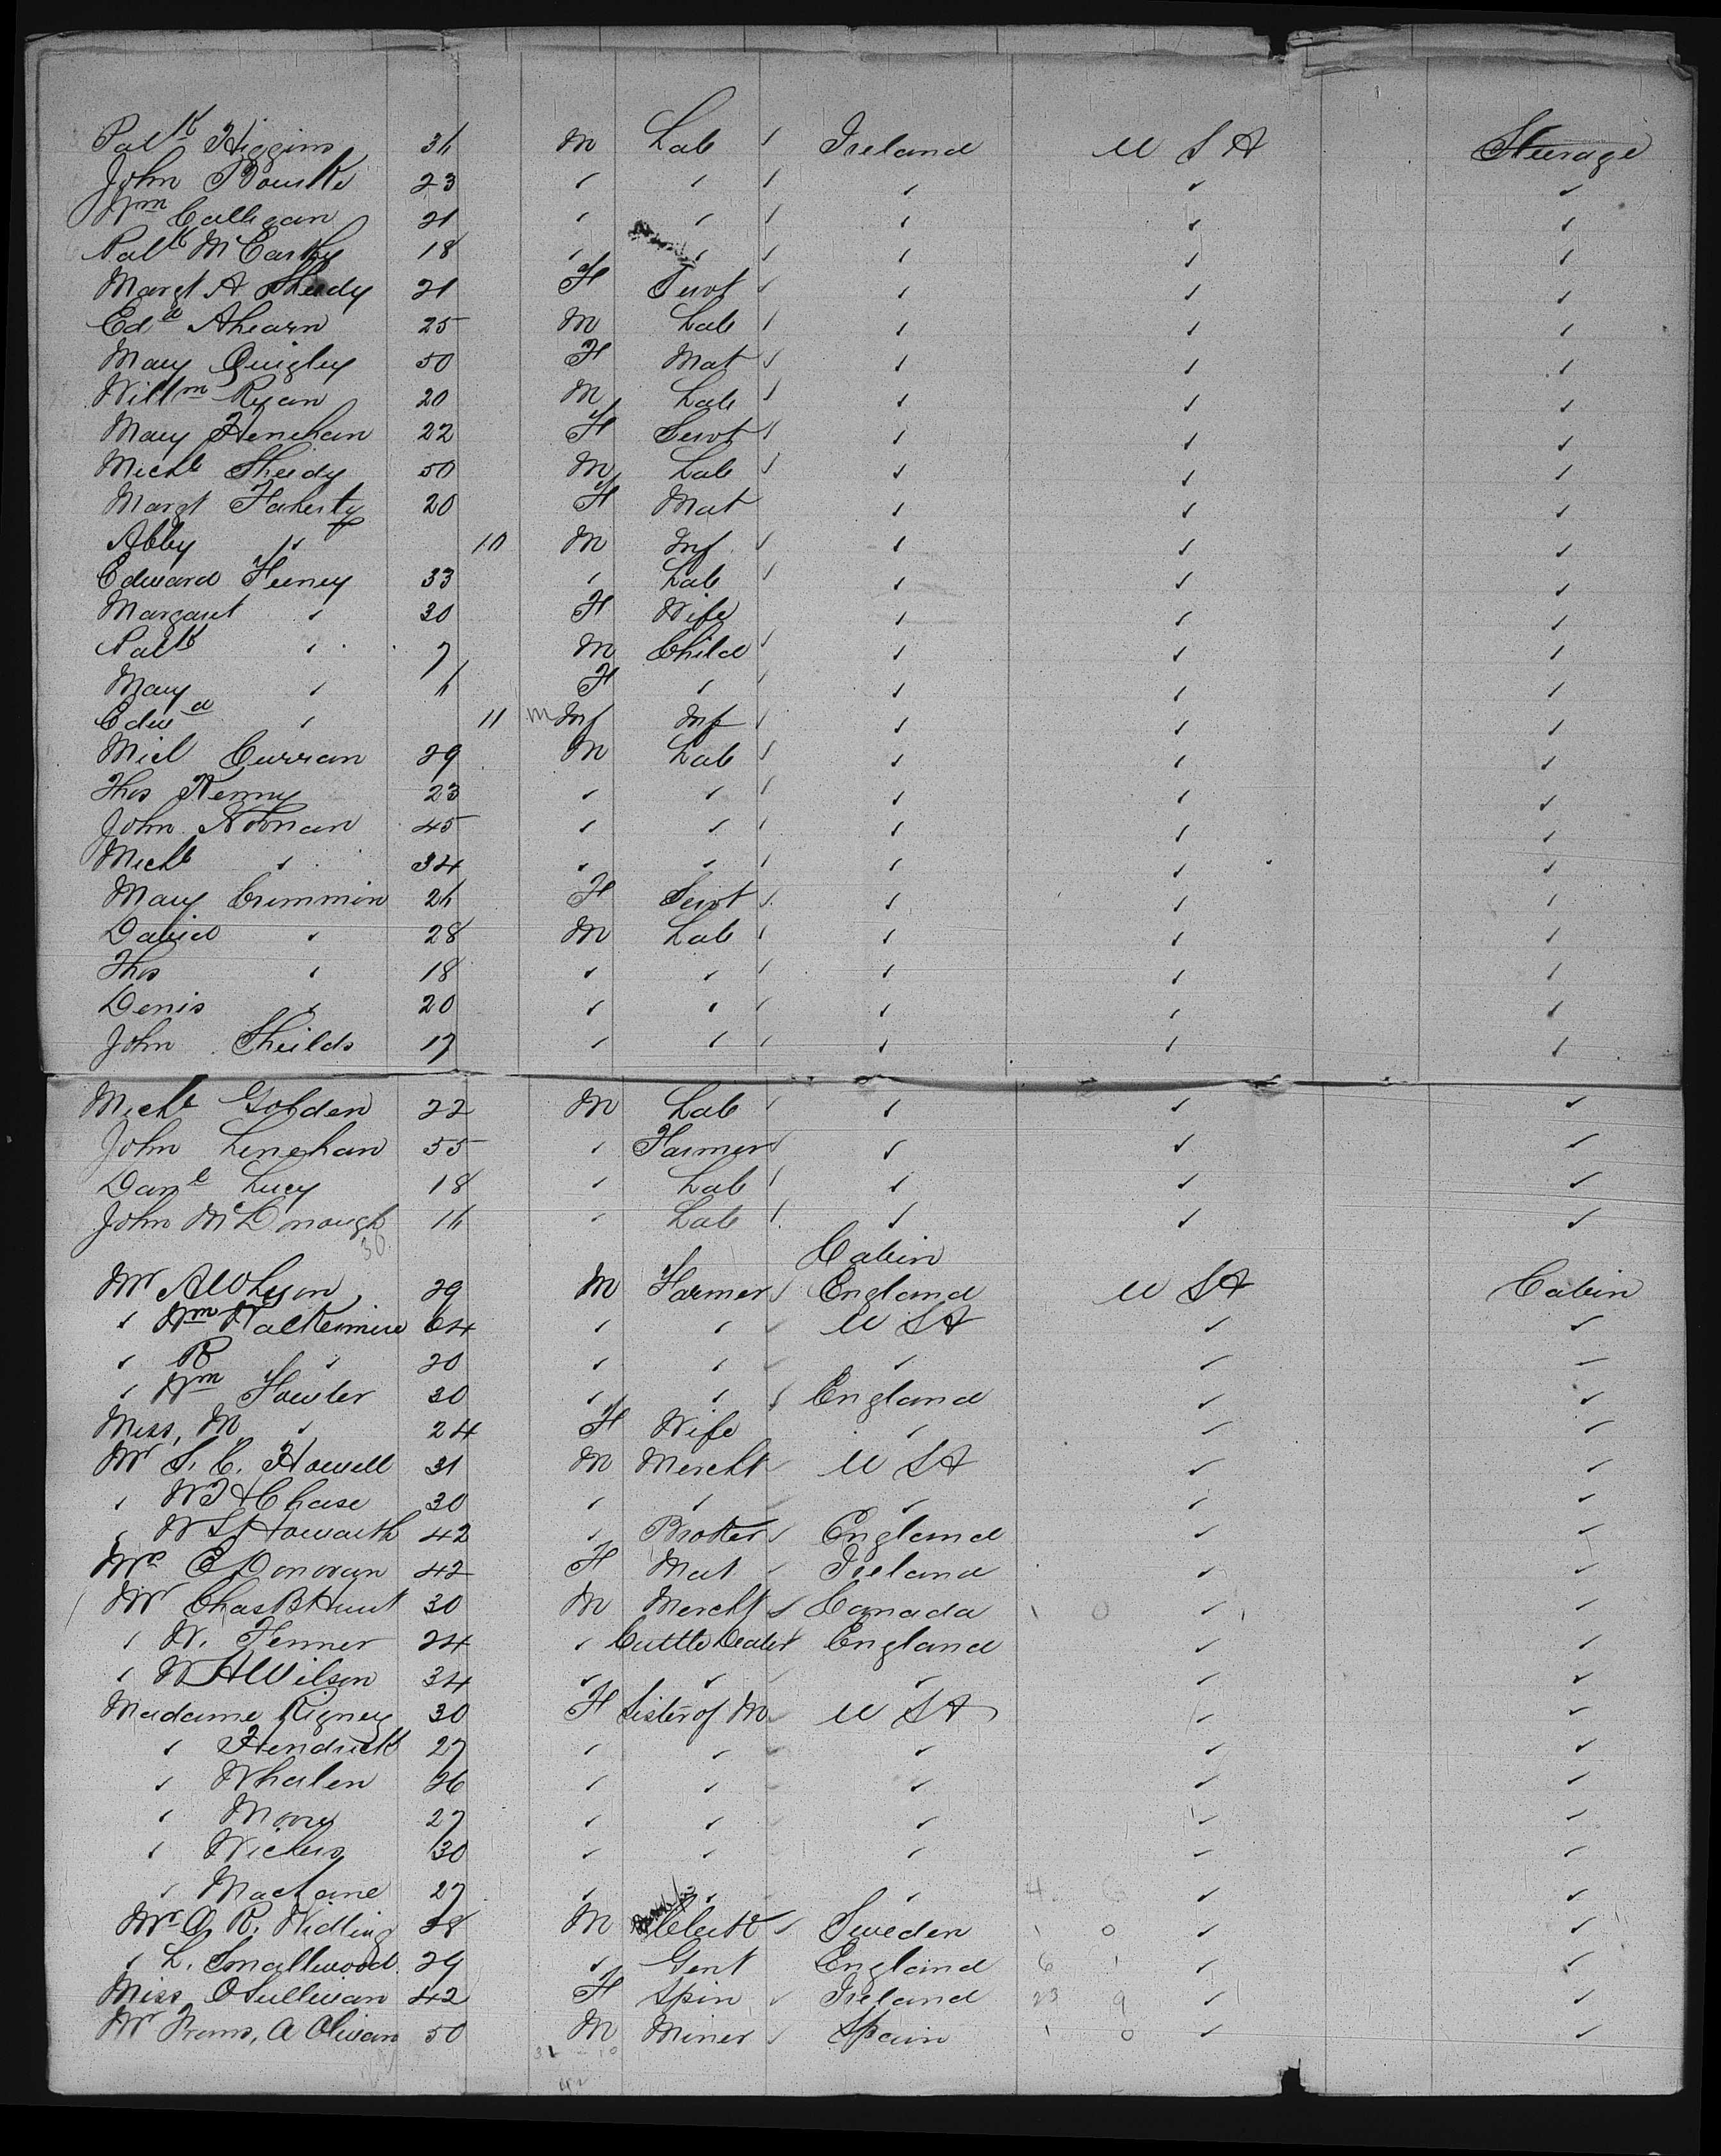 Patk Higgins 36 M Lab ✓ Ireland U S A Steerage
John Bourke 23 ✓ ✓ ✓ ✓ ✓ ✓
Wm Calligan 21 ✓ ✓ ✓ ✓ ✓ ✓
Patk McCarthy 18 ✓ ✓ ✓ ✓ ✓ ✓
Margt A Sheedy 21 F Servt ✓ ✓ ✓ ✓
Edd Ahearn 25 M Lab ✓ ✓ ✓ ✓
Mary Quigley 50 F Mat ✓ ✓ ✓ ✓
Willm Ryan 20 M Lab ✓ ✓ ✓ ✓
Mary Henehan 22 F Servt ✓ ✓ ✓ ✓
Michl Sheedy 50 M Lab ✓ ✓ ✓ ✓
Margt Faherty 20 F Mat ✓ ✓ ✓
Abby ✓ 10 M Inf ✓ ✓ ✓ ✓
Edward Feeney 33 ✓ Lab ✓ ✓ ✓ ✓
Margaret ✓ 30 F Wife ✓ ✓ ✓
Patk ✓ 7 M Child ✓ ✓ ✓ ✓
Mary ✓ 6 F ✓ ✓ ✓ ✓ ✓
Edwd ✓ 11 m Inf Inf ✓ ✓ ✓ ✓
Micl Curran 29 M Lab ✓ ✓ ✓ ✓
Thos Kenny 23 ✓ ✓ ✓ ✓ ✓ ✓
John Noonan 45 ✓ ✓ ✓ ✓ ✓ ✓
Michl ✓ 34 ✓ ✓ ✓ ✓ ✓ ✓
Mary Crimmin 26 F Servt ✓ ✓ ✓ ✓
David ✓ 28 M Lab ✓ ✓ ✓ ✓
Thos ✓ 18 ✓ ✓ ✓ ✓ ✓ ✓
Denis ✓ 20 ✓ ✓ ✓ ✓ ✓ ✓
John Sheilds 17 ✓ ✓ ✓ ✓ ✓ ✓
Michl Golden 22 M Lab ✓ ✓ ✓ ✓
John Lenehan 55 ✓ Farmer ✓ ✓ ✓ ✓
Danl Lucy 18 ✓ Lab ✓ ✓ ✓ ✓
John McDonough 16 ✓ Lab ✓ ✓ ✓ ✓
30
Cabin
Mr 29 M Farmer ✓ England U S A Cabin
✓ Wm 64 ✓ ✓ ✓ U S A ✓ ✓
✓ R ✓ 20 ✓ ✓ ✓ ✓ ✓ ✓
✓ Wm Fowler 30 ✓ ✓ ✓ England ✓ ✓
Miss, M ✓ 24 F Wife ✓ ✓ ✓
Mr S. C. Howell 31 M Mercht ✓ U S A ✓ ✓
✓ W H Chase 30 ✓ ✓ ✓ ✓ ✓ ✓
✓ W S Howarth 42 ✓ Broker ✓ England ✓ ✓
Mrs E Donovan 42 F Mat ✓ Ireland ✓ ✓
Mr Chas B Hunt 30 M Mercht ✓ Canada 1 0 ✓ ✓
✓ W. Fenner 24 ✓ Cattle Dealer ✓ England ✓ ✓
✓ W H Wilson 34 ✓ ✓ ✓ ✓ ✓ ✓
Madame Rigney 30 F Sister of M ✓ U S A ✓ ✓
✓ Hendrick 27 ✓ ✓ ✓ ✓ ✓ ✓
✓ Whalen 26 ✓ ✓ ✓ ✓ ✓ ✓
✓ Moore 27 ✓ ✓ ✓ ✓ ✓
✓ 30 ✓ ✓ ✓ ✓ ✓
✓ 27 ✓ ✓ ✓ 4 ✓ ✓
Mr A R. Widling 28 M Clerk ✓ Sweden 1 0 ✓ ✓
✓ L. Smallwood 29 ✓ Gent England 6 1 ✓ ✓
Miss, OSullivan 42 F Spin ✓ Ireland 23 9 ✓ ✓
Mr Frans, A Olivan 50 M Miner ✓ Spain 1 0 ✓ ✓